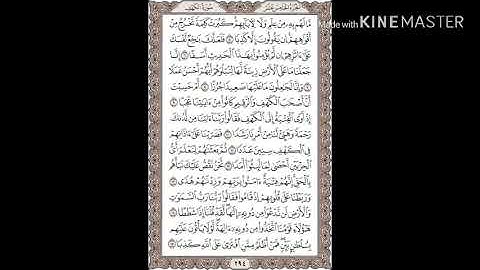 الجزء الخامس عشر سورة الكهف
Made with KINEMASTER
مَّا لَهُم بِهِۦ مِنْ عِلْمٍ وَلَا لِـَٔابَآئِهِمْ كَبُرَتْ كَلِمَةً تَخْرُجُ مِنْ
أَفْوَٰهِهِمْ إِن يَقُولُونَ إِلَّا كَذِبًا ٥ فَلَعَلَّكَ بَٰخِعٌ نَّفْسَكَ
عَلَىٰٓ ءَاثَٰرِهِمْ إِن لَّمْ يُؤْمِنُوا۟ بِهَٰذَا ٱلْحَدِيثِ أَسَفًا ٦ إِنَّا
جَعَلْنَا مَا عَلَى ٱلْأَرْضِ زِينَةً لَّهَا لِنَبْلُوَهُمْ أَيُّهُمْ أَحْسَنُ عَمَلًا
٧ وَإِنَّا لَجَٰعِلُونَ مَا عَلَيْهَا صَعِيدًا جُرُزًا ٨ أَمْ حَسِبْتَ
أَنَّ أَصْحَٰبَ ٱلْكَهْفِ وَٱلرَّقِيمِ كَانُوا۟ مِنْ ءَايَٰتِنَا عَجَبًا ٩
إِذْ أَوَى ٱلْفِتْيَةُ إِلَى ٱلْكَهْفِ فَقَالُوا۟ رَبَّنَآ ءَاتِنَا مِن لَّدُنكَ
رَحْمَةً وَهَيِّئْ لَنَا مِنْ أَمْرِنَا رَشَدًا ١٠ فَضَرَبْنَا عَلَىٰٓ ءَاذَانِهِمْ
فِى ٱلْكَهْفِ سِنِينَ عَدَدًا ١١ ثُمَّ بَعَثْنَٰهُمْ لِنَعْلَمَ أَىُّ
ٱلْحِزْبَيْنِ أَحْصَىٰ لِمَا لَبِثُوٓا۟ أَمَدًا ١٢ نَّحْنُ نَقُصُّ عَلَيْكَ نَبَأَهُم
بِٱلْحَقِّ إِنَّهُمْ فِتْيَةٌ ءَامَنُوا۟ بِرَبِّهِمْ وَزِدْنَٰهُمْ هُدًى ١٣
وَرَبَطْنَا عَلَىٰ قُلُوبِهِمْ إِذْ قَامُوا۟ فَقَالُوا۟ رَبُّنَا رَبُّ ٱلسَّمَٰوَٰتِ
وَٱلْأَرْضِ لَن نَّدْعُوَا۟ مِن دُونِهِۦٓ إِلَٰهًا لَّقَدْ قُلْنَآ إِذًا شَطَطًا ١٤
هَٰٓؤُلَآءِ قَوْمُنَا ٱتَّخَذُوا۟ مِن دُونِهِۦٓ ءَالِهَةً لَّوْلَا يَأْتُونَ عَلَيْهِم
بِسُلْطَٰنٍۭ بَيِّنٍ فَمَنْ أَظْلَمُ مِمَّنِ ٱفْتَرَىٰ عَلَى ٱللَّهِ كَذِبًا ١٥
٢٩٤